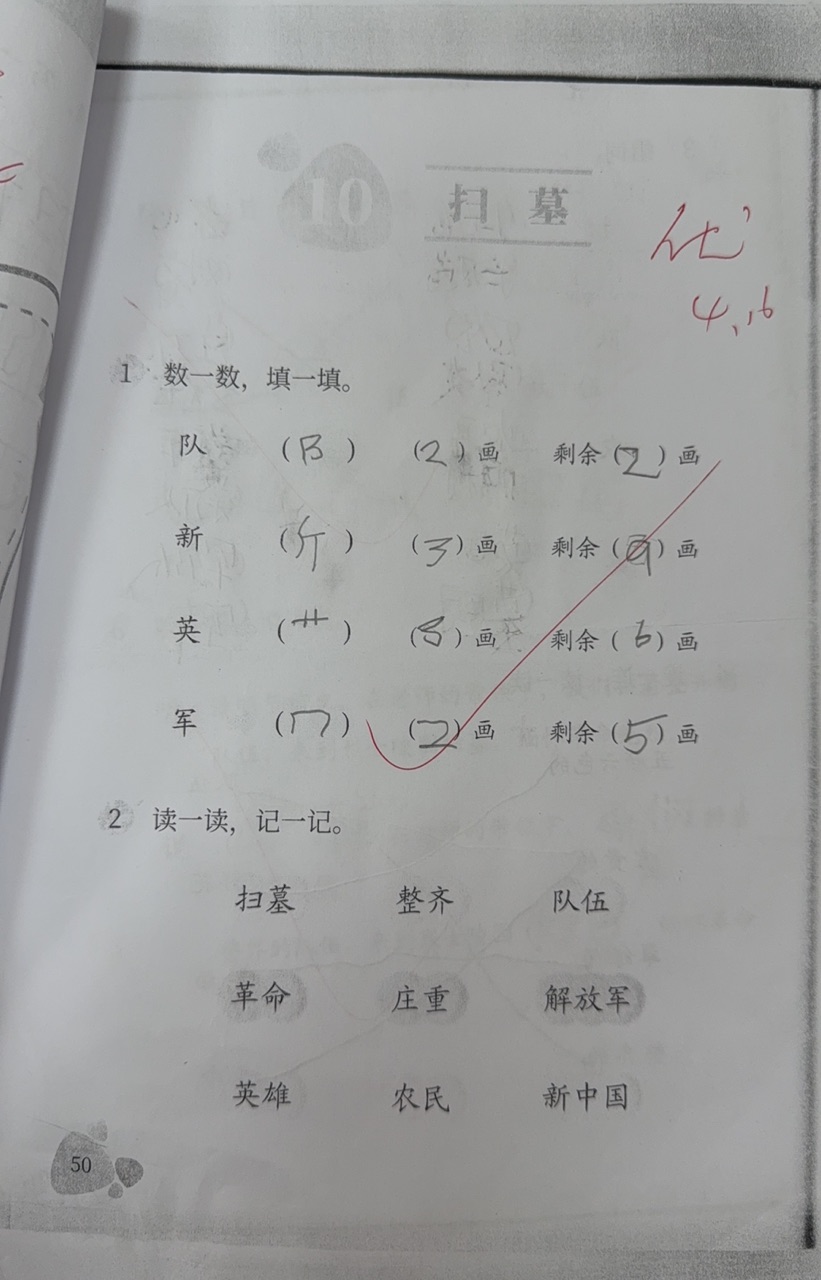 10 扫 墓
优
4.16
1 数一数，填一填。
队 （阝） （2）画 剩余（2）画
新 （斤） （3）画 剩余（9）画
英 （艹） （3）画 剩余（6）画
军 （冖） （2）画 剩余（5）画
2 读一读，记一记。
扫墓 整齐 队伍
革命 庄重 解放军
英雄 农民 新中国
50